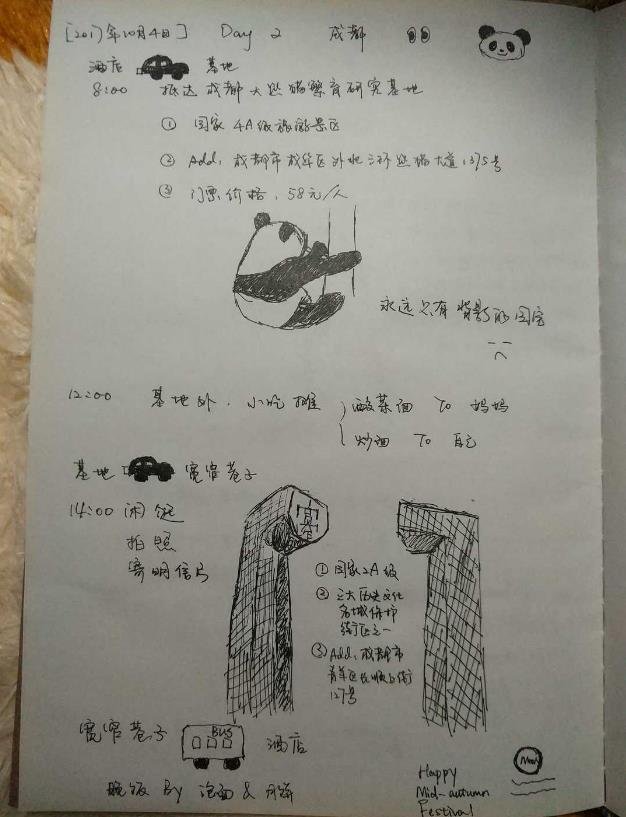 [2017年10月4日] Day 2 成都
酒店 基地
8:00 抵达成都大熊猫繁育研究基地
① 国家4A级旅游景区
② Add: 成都市成华区外北三环熊猫大道1375号
③ 门票价格: 58元/人
永远只有背影的国宝
12:00 基地外, 小吃摊
酸菜面 To 妈妈
炒面 To 自己
基地 宽窄巷子
14:00 闲逛
拍照
寄明信片
① 国家2A级
② 三大历史文化
名城保护
街区之一
③ Add: 成都市
青羊区长顺上街
127号
宽窄巷子 BUS 酒店
晚饭 By 泡面 & 月饼
Happy
Mid-autumn
Festival